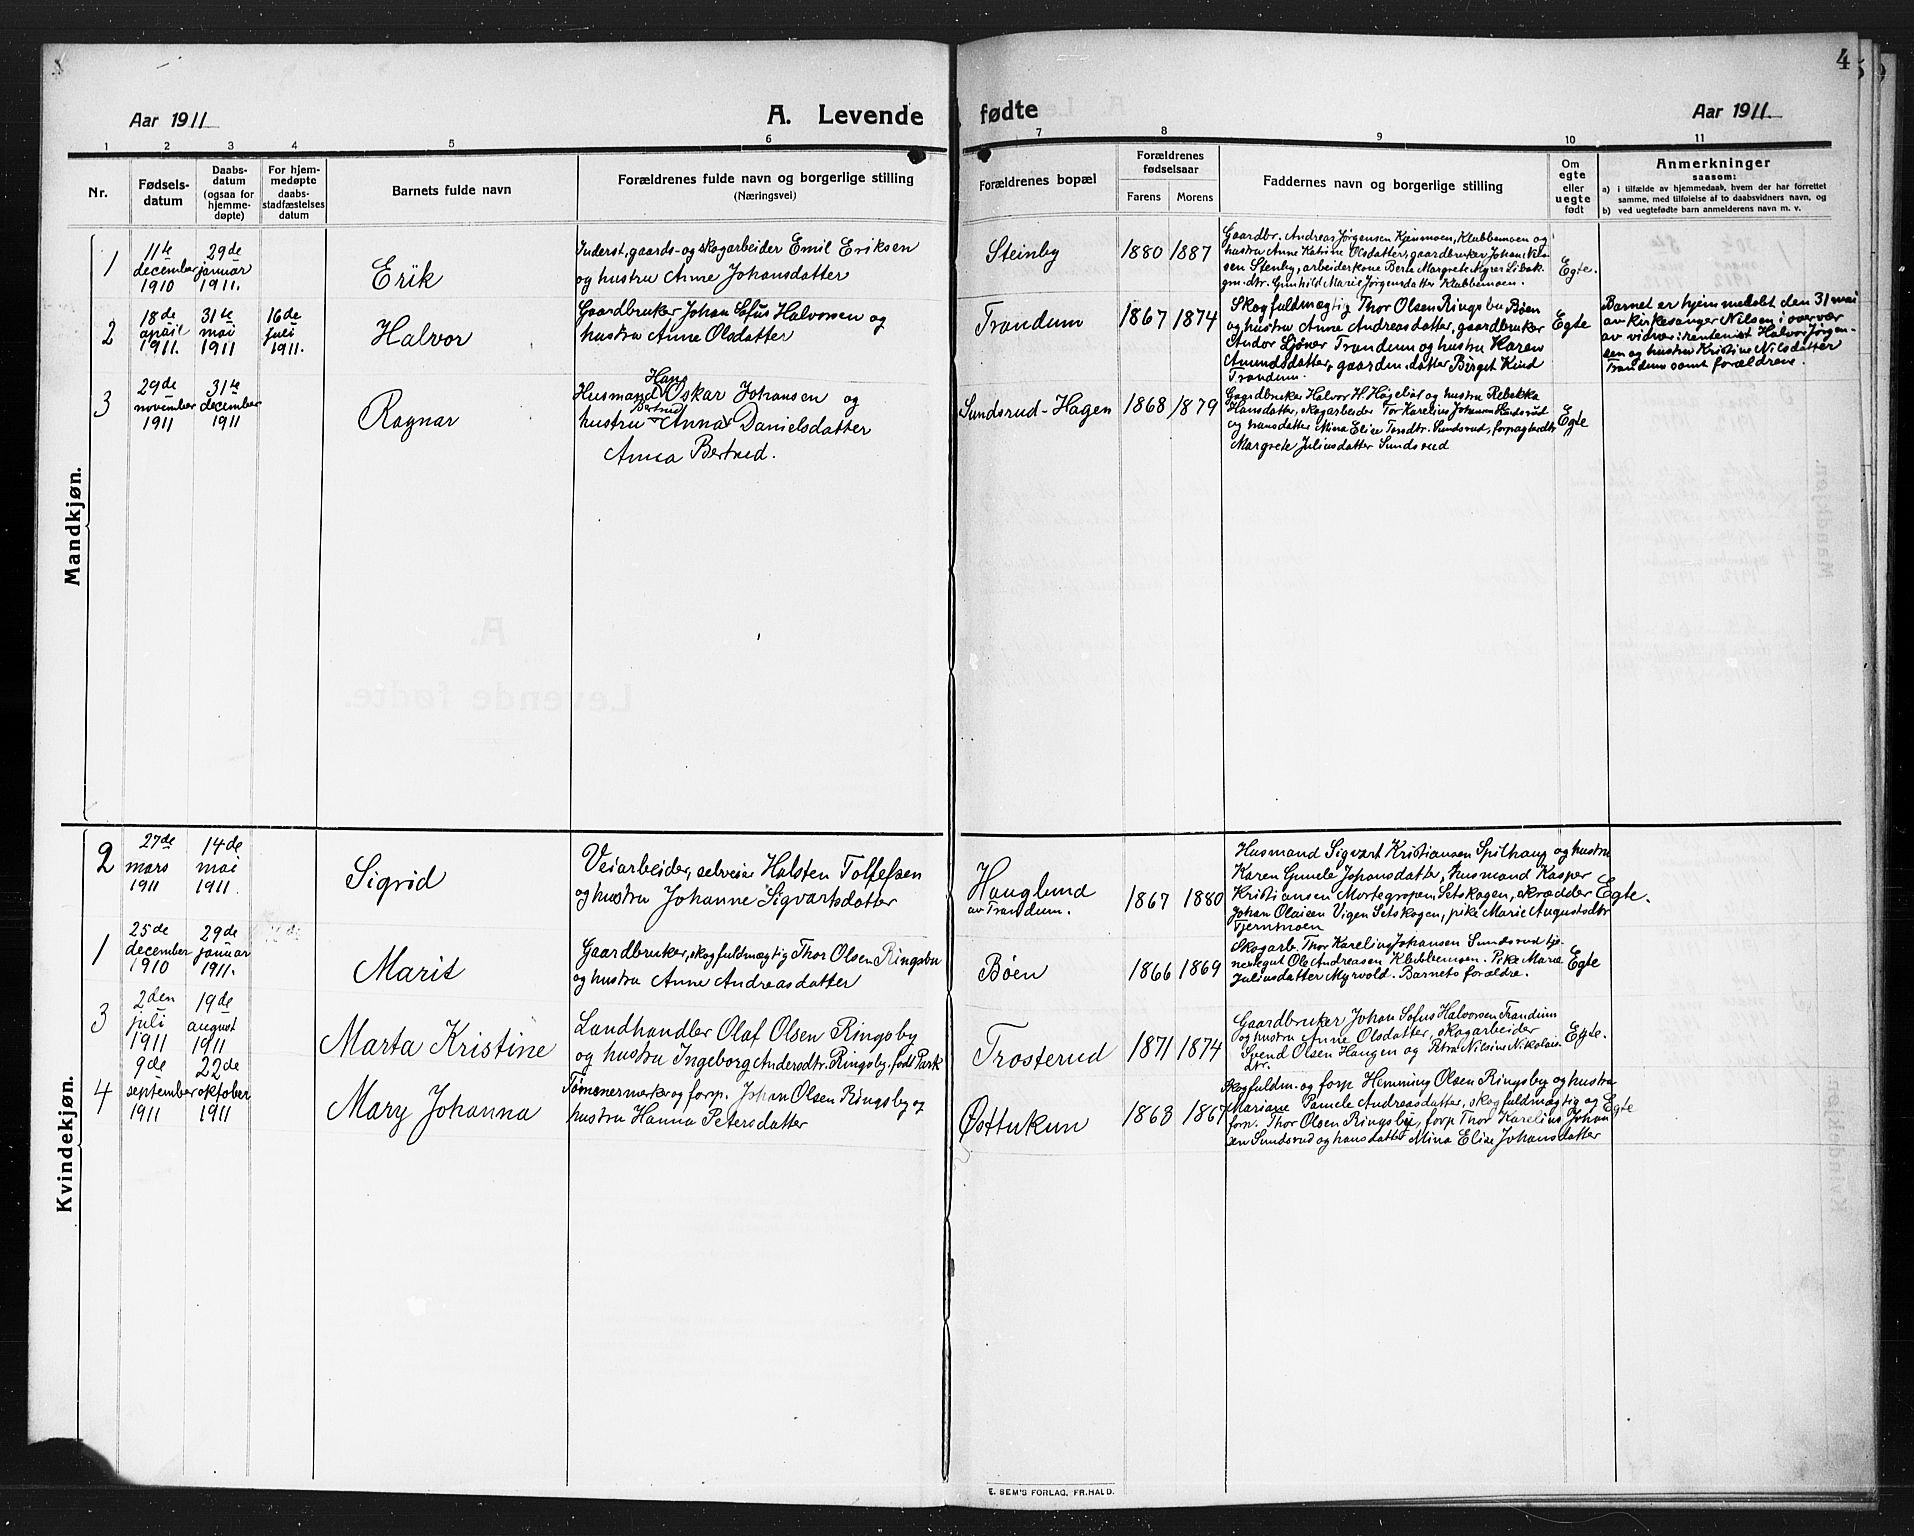 4
Aar 1911
A. Levende fødte
Aar 1911.
1 2 3 4 5 6 7 8 9 10 11
Nr.
Fødsels-
datum
Daabs-
datum
(ogsaa for
hjemme-
døpte)
For hjem-
medøpte
daabs-
stadfæstelses
datum
Barnets fulde navn
Forældrenes fulde navn og borgerlige stilling
(Næringsvei)
Forældrenes bopæl
Forældrenes
fødselsaar
Farens Morens
Faddernes navn og borgerlige stilling
Om
egte
eller
uegte
født
Anmerkninger
saasom:
a) i tilfælde av hjemmedaab, hvem der har forrettet
samme, med tilføielse af to daabsvidners navn, og
b) ved uegtefødte barn anmelderens navn m. v.
Mandkjøn.
1
11te
december
1910
29de
januar
1911.
Erik
Inderst, gaards- og skogarbeider Emil Eriksen
og hustru Anne Johansdatter
Steinby
1880 1887
Gaardbr. Andreas Jørgensen Kjenmoen, Klubbemoen og
hustru Anne Katrine Olsdatter, gaardbruker Johan Nils-
sen Stenby, arbeiderkone Berte Margrete
gm.dtr. Gunhild Marie Jørgensdatter Klubbemoen.
Egte.
2
18de
april
1911.
31te
mai
1911
16de
juli
1911.
Halvor
Gaardbruker Johan Sofus Halvorsen og
hustru Anne Olsdatter
Trandum
1867 1874
Skogfuldmægtig Thor Olsen Ringsbu Bøen
og hustru Anne Andreasdatter, gaardbruker
Andor Ljøner Trandum og hustru Karen
Amundsdatter, gaardm.datter Birget Kind
Trandum.
Egte
Barnet er hjemmedøbt den 31 mai
av kirkesanger Nilsen i overvær
av vidner: rentenist Halvor Jørgen-
sen og hustru Kristine Nilsdatter
Trandum samt forældrene.
3
29de
november
1911
31te
december
1911
Ragnar
Hans
Husmand Oskar Johansen og
Bertrud
hustru Anna Danielsdatter
Anna Bertrud.
Sundsrud-Hagen
1868 1879
Gaardbruker Halvor H Høgebøl og hustru Rebekka
Hansdatter, skogarbeider Tor Karelius Johansen Sundsrud
og hansdatter Mina Elise Torsdtr. Sundsrud, forpagterdtr
Margrete Juliusdatter Sundsrud
Egte
Kvindekjøn.
2
27de
mars
1911
14de
mai
1911.
Sigrid
Veiarbeider, selveier Halsten Tollefsen
og hustru Johanne Sigvartsdatter
Hauglund
av Trandum.
1867 1880
Husmand Sigvart Kristiansen Spilhaug og hustru
Karen Gunele Johansdatter, Husmand Kasper
Kristiansen Mortegropen Setskogen, skrædder
Johan Olaisen Vigen Setskogen, pike Marie Augustsdtr
Tjernmoen
Egte.
1
25de
december
1910
29de
januar
1911.
Marit
Gaardbruker, skogfuldmægtig Thor Olsen Ringsbu
og hustru Anne Andreasdatter
Bøen
1866 1869
Skogarb. Thor Karelius Johansen Sundsrud tje-
nestegut Ole Andreasen Klubbemoen. Pike Marie
Juliusdatter Myrvold. Barnets forældre.
Egte
3
2den
juli
1911
19de
august
1911
Marta Kristine
Landhandler Olaf Olsen Ringsby
og hustru Ingeborg Andersdtr. Ringsby, født Park
Trosterud
1871 1874
Gaardbruker Johan Sofus Halvorsen Trandum
og hustru Anne Olsdatter, skogarbeider
Svend Olsen Haugen og Petra Nilsine Nikolais-
dtr.
Egte.
4
9de
september
1911
22de
oktober
1911
Mary Johanna
Tømmermerker og forp. Johan Olsen Ringsby og
hustru Hanna Petersdatter
Østtukun
1868 1867
Skogfuldm. og forp Hemming Olsen Ringsby og hustru
Mariane Pamele Andreasdatter, skogfuldmægtig og
forp. Thor Olsen Ringsby, forp Thor Karelius Johan
sen Sundsrud og hansdatter Mina Elise Johansdatter
Egte
E. SEM'S FORLAG, FR.HALD.